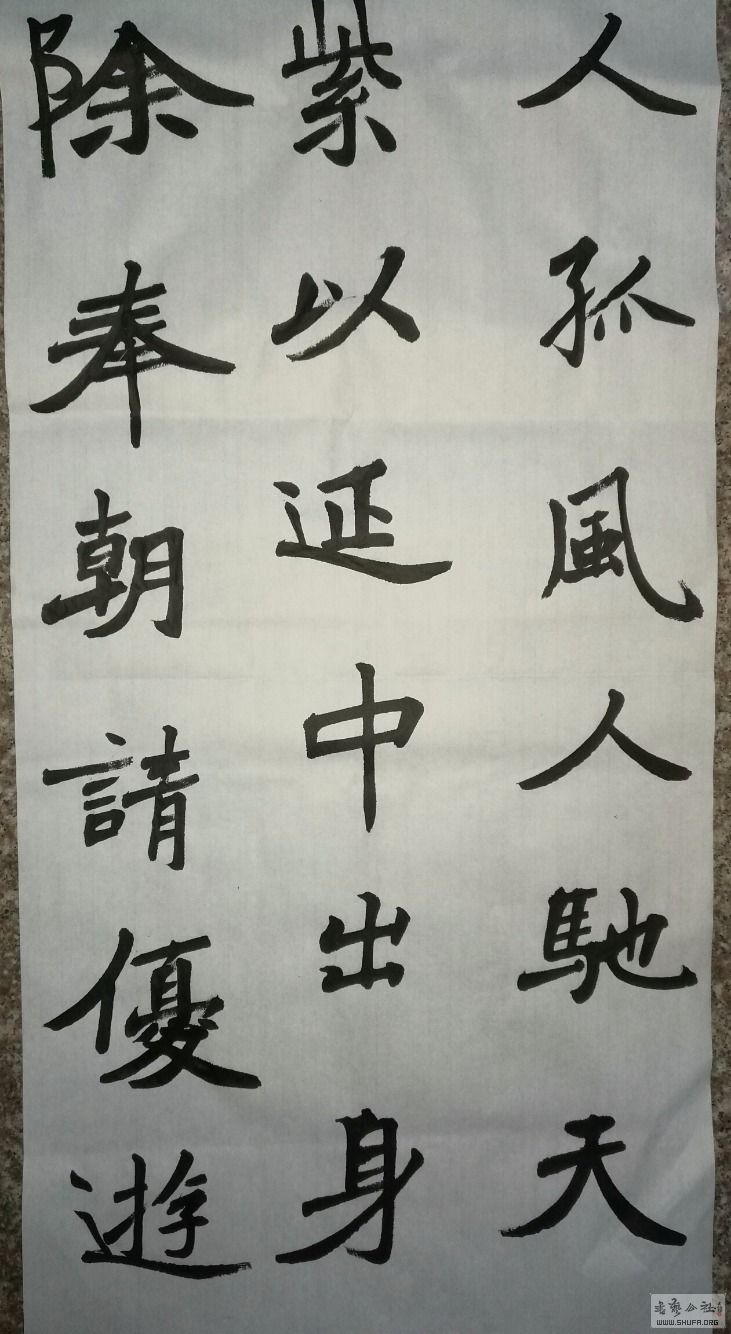 人孤風人馳天
紫以延中出身
除奉朝請優遊
書藝公社
WWW.SHUFA.ORG